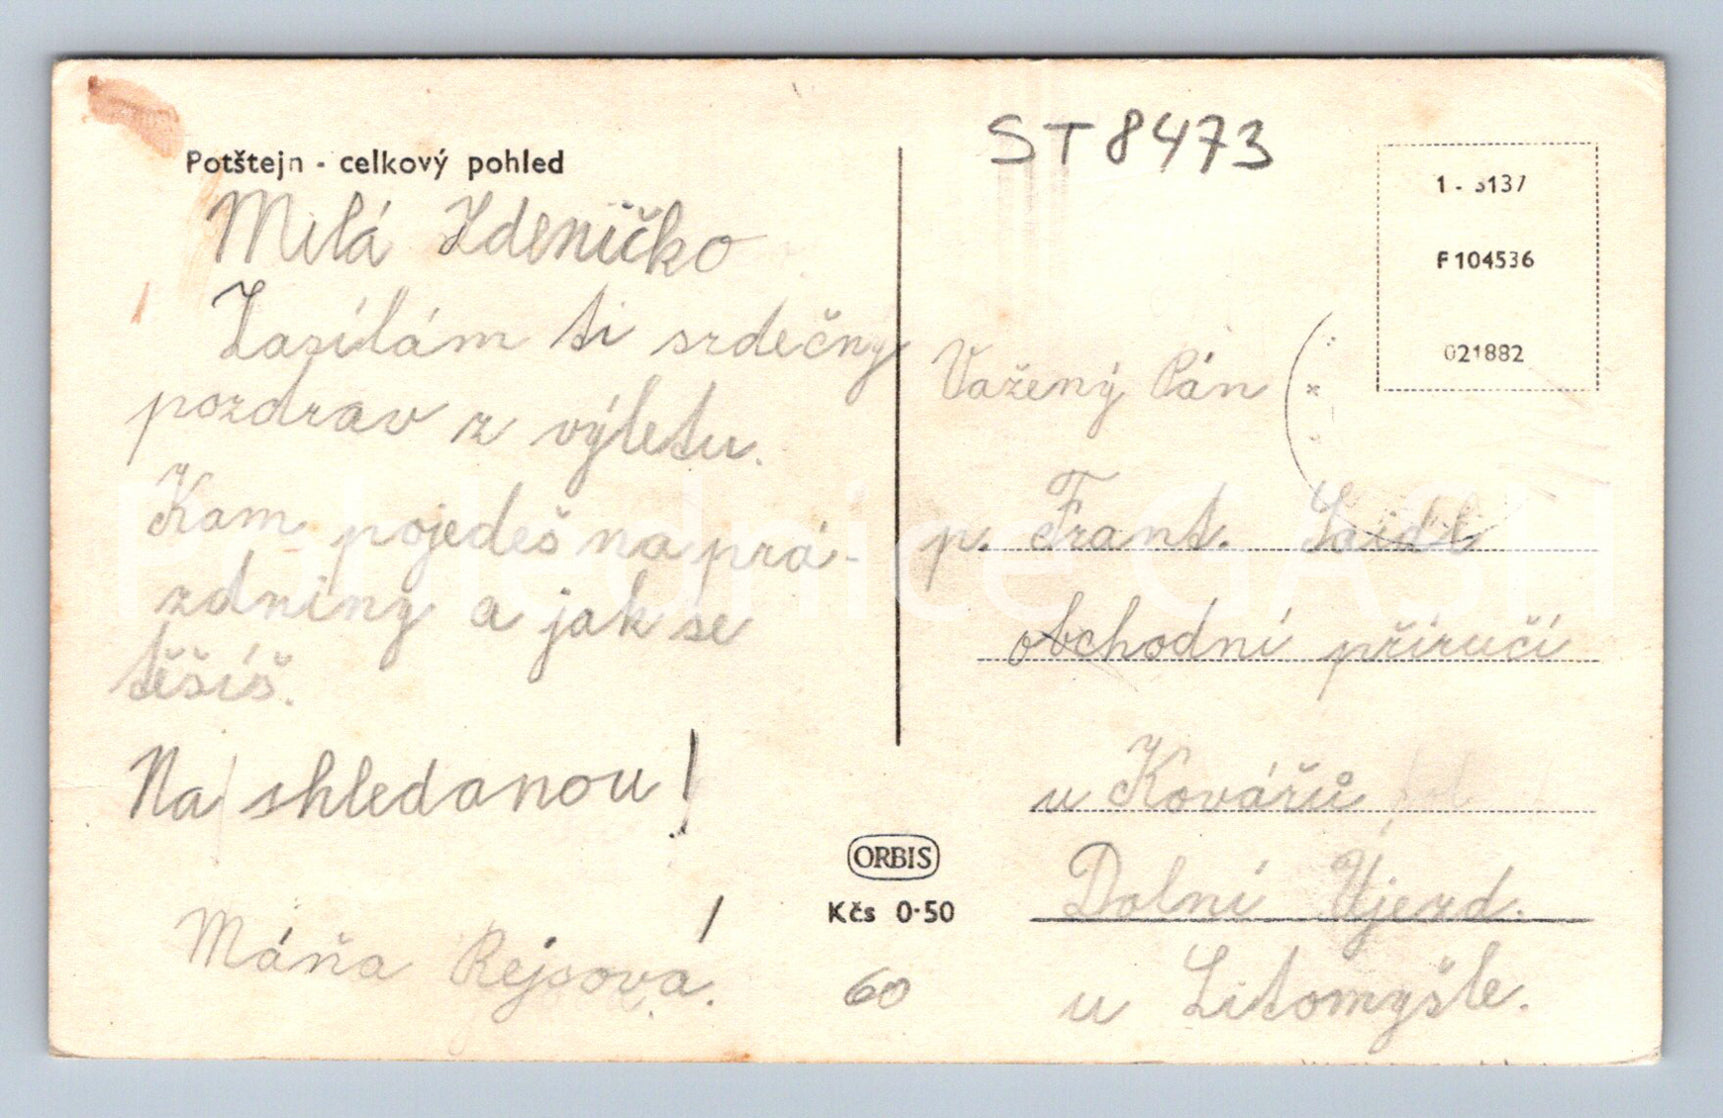 Potštejn - celkový pohled
Milá Zdeničko
Zasílám ti srdečný
pozdrav z výletu.
Kam pojedeš na prá-
zdniny a jak se
těšíš.
Na shledanou!
Máňa Rejsová.
ORBIS
Kčs 0·50
60
ST8473
1 - 3137
F 104536
021882
Vážený Pán
p. Frant. Saidl
obchodní příručí
u Kovářů
Dolní Újezd.
u Litomyšle.
Pohlednice GASH